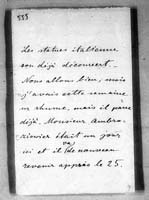 333
Les statues italienne
son déjà découvert. -
Nous allons bien, mais
j'avais cette semaine
un rhume, mais il passe
déjà. Monsieur Ambro-
était un jour
ici et il va de nouveau
revenir appres le 25.